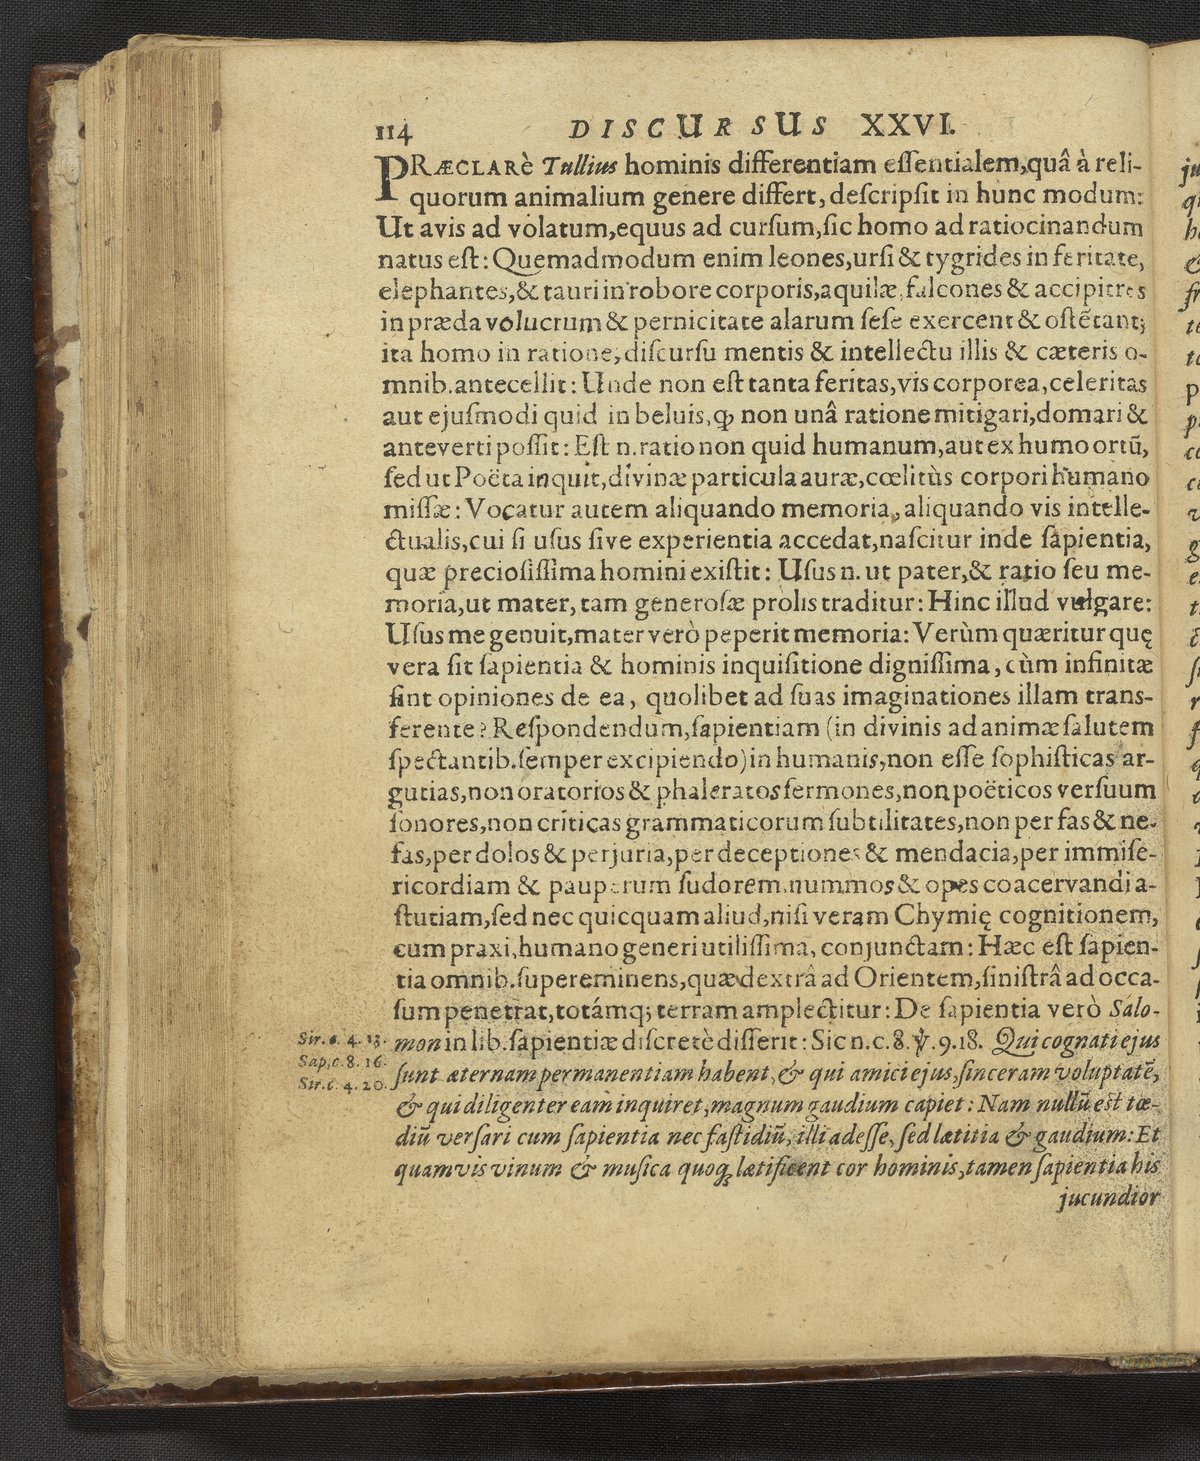 114 DISCURSUS XXVI.
PRÆCLARè Tullius hominis differentiam eſſentialem,quâ à reli-
quorum animalium genere differt, deſcripſit in hunc modum:
Ut avis ad volatum,equus ad curſum,ſic homo ad ratiocinandum
natus eſt: Quemadmodum enim leones,urſi & tygrides in feritate,
elephantes,& tauri in robore corporis,aquilæ,falcones & accipitres
in præda volucrum & pernicitate alarum ſeſe exercent & oſtẽtant;
ita homo in ratione, diſcurſu mentis & intellectu illis & cæteris o-
mnib.antecellit: Unde non eſt tanta feritas,vis corporea,celeritas
aut ejuſmodi quid in beluis,ꝙ non unâ ratione mitigari,domari &
anteverti poſſit: Eſt n.ratio non quid humanum,aut ex humo ortũ,
ſed ut Poëta inquit,divinæ particula auræ,cœlitùs corpori humano
miſſæ: Vocatur autem aliquando memoria, aliquando vis intelle-
ctualis,cui ſi uſus ſive experientia accedat,naſcitur inde ſapientia,
quæ precioſiſſima homini exiſtit: Uſus n. ut pater,& ratio ſeu me-
moria,ut mater, tam generoſæ prolis traditur: Hinc illud vulgare:
Uſus me genuit,mater verò peperit memoria: Verùm quæritur quę
vera ſit ſapientia & hominis inquiſitione digniſſima, cùm infinitæ
ſint opiniones de ea, quolibet ad ſuas imaginationes illam trans-
ferente? Reſpondendum,ſapientiam (in divinis ad animæ ſalutem
ſpectantib.ſemper excipiendo) in humanis,non eſſe ſophiſticas ar-
gutias,non oratorios & phaleratos ſermones,non poëticos verſuum
ſonores,non criticas grammaticorum ſubtilitates,non per fas & ne-
fas,per dolos & perjuria,per deceptiones & mendacia,per immiſe-
ricordiam & pauperum ſudorem nummos & opes coacervandi a-
ſtutiam,ſed nec quicquam aliud,niſi veram Chymię cognitionem,
cum praxi,humano generi utiliſſima, conjunctam: Hæc eſt ſapien-
tia omnib.ſupereminens,quæ dextrâ ad Orientem,ſiniſtrâ ad occa-
ſum penetrat,totámq; terram amplectitur: De ſapientia verò Salo-
Sir. c. 4. 13.
Sap.c.8.16.
Sir.c.4.20.
mon in lib.ſapientiæ diſcretè diſſerit: Sic n.c.8.℣.9.18. Qui cognati ejus
ſunt æternam permanentiam habent, & qui amici ejus,ſinceram voluptatẽ,
& qui diligenter eam inquiret,magnum gaudium capiet: Nam nullũ est tæ-
diũ verſari cum ſapientia nec faſtidiũ, illi adeſſe, ſed lætitia & gaudium: Et
quamvis vinum & muſica quoq; lætificent cor hominis,tamen ſapientia his
jucundior